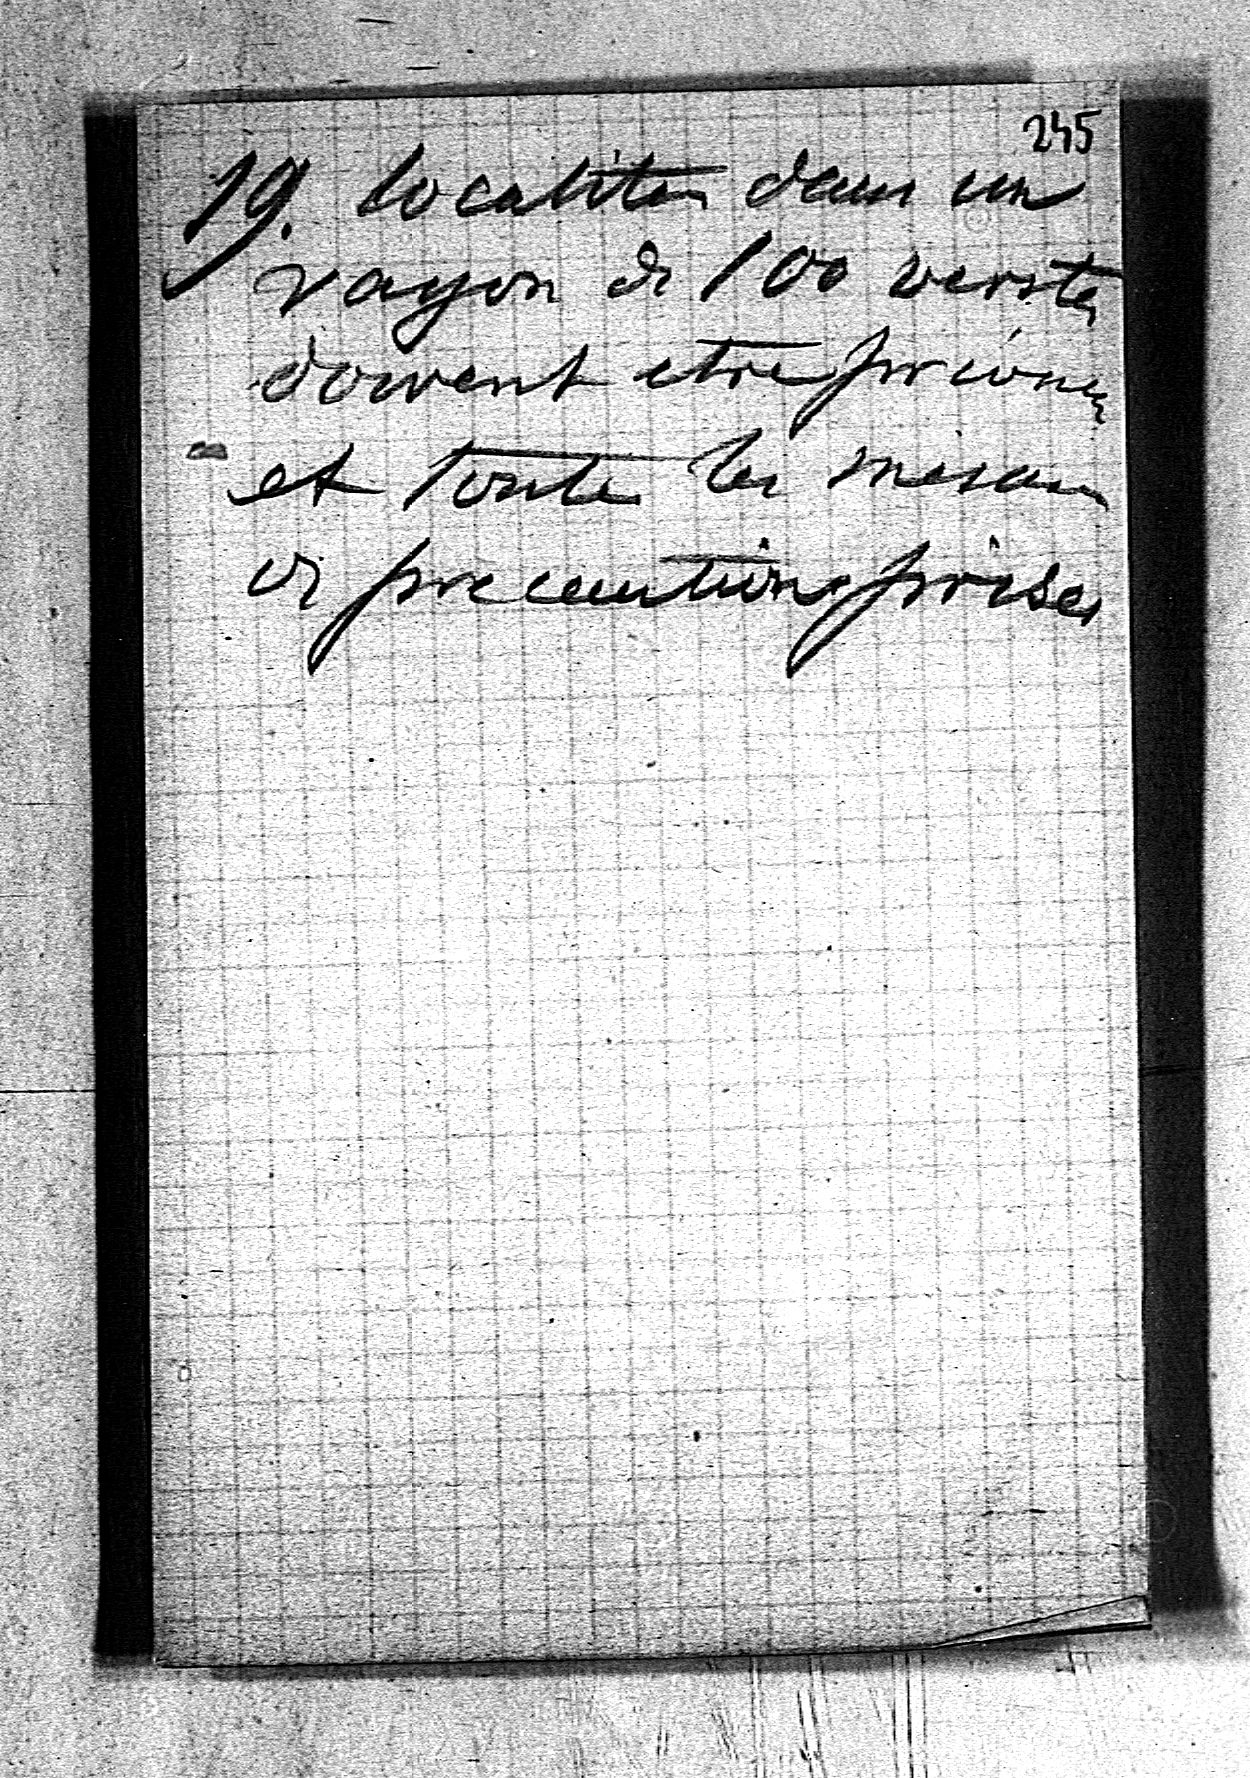 245
19. localités dans un
rayon de 100 verstes
doivent etre
et toute les mesures
de precautions prises